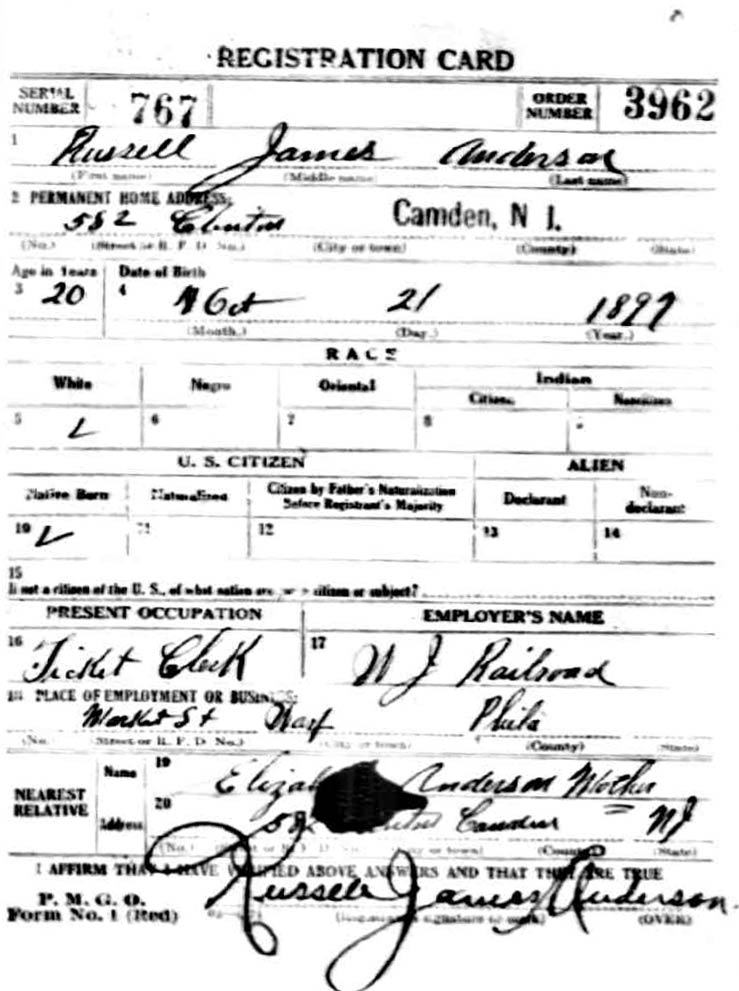 REGISTRATION CARD
SERIAL NUMBER 767 ORDER NUMBER 3962
1 Russell James Anderson
(First name) (Middle name) (Last name)
2 PERMANENT HOME ADDRESS:
582 Clinton Camden, N J.
(No.) (Street or R. F. D. No.) (City or town) (County) (State)
Age in Years Date of Birth
3 20 4 Oct 21 1897
(Month.) (Day.) (Year.)
RACE
White Negro Oriental Indian
Citizen Noncitizen
5 6 7 8
U. S. CITIZEN ALIEN
Native Born Naturalized Citizen by Father's Naturalization Before Registrant's Majority Declarant Non-declarant
10 11 12 13 14
15
If not a citizen of the U. S., of what nation are you a citizen or subject?
PRESENT OCCUPATION EMPLOYER'S NAME
16 Ticket Clerk 17 N J Railroad
18 PLACE OF EMPLOYMENT OR BUSINESS:
Market St Warf Phila
(No.) (Street or R. F. D. No.) (City or town) (County) (State)
NEAREST RELATIVE Name 19 Anderson Mother
Address 20 582 Camden NJ
(No.) (Street or R. F. D. No.) (City or town) (County) (State)
I AFFIRM THAT I HAVE VERIFIED ABOVE ANSWERS AND THAT THEY ARE TRUE
P. M. G. O.
Form No. 1 (Red) Russell James Anderson.
(Registrant's signature or mark) (OVER)